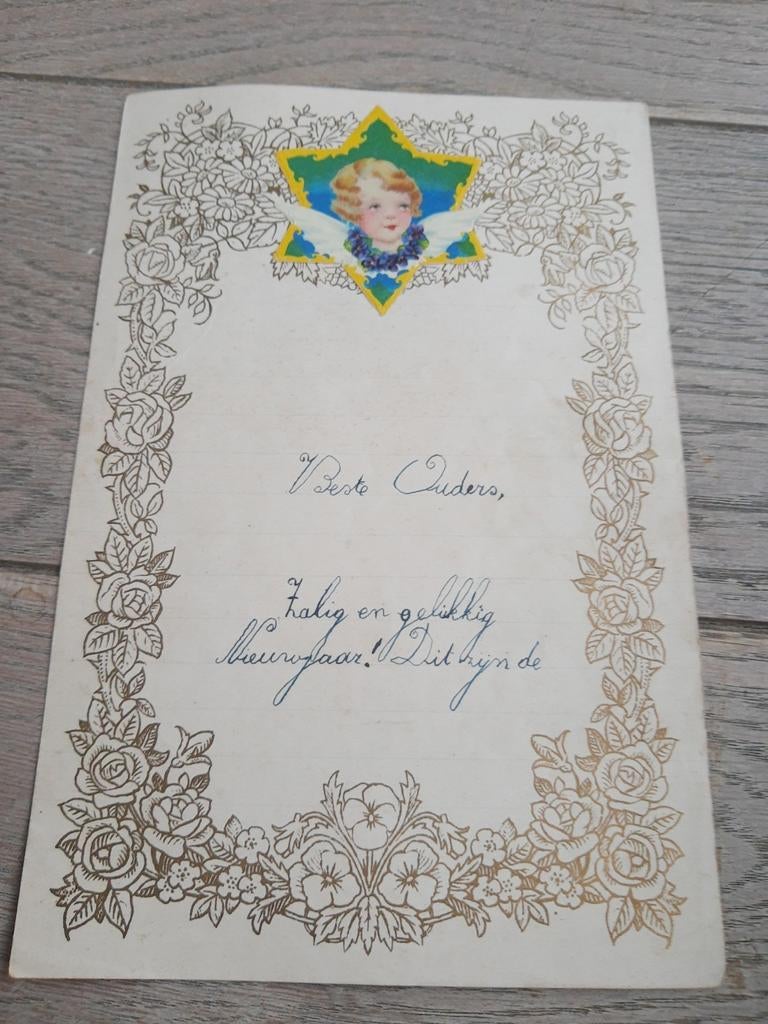 Beste Ouders,
Zalig en gelukkig
Nieuwjaar! Dit zijn de